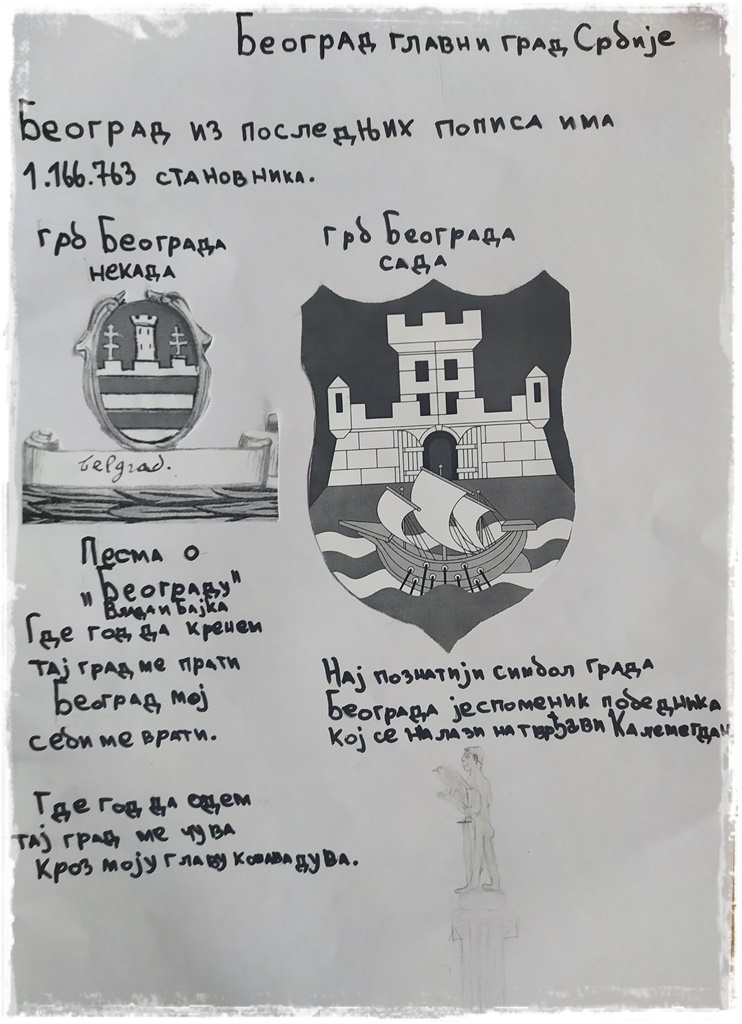 Београд главни град Србије
Београд из последњих пописа има
1.166.763 становника.
грб Београда
некада
грб Београда
сада
Belgrad.
Песма о
"Београду"
Влада и Бајка
Где год да кренем
тај град ме прати
Београд мој
себи ме врати.
Где год да одем
тај град ме чува
кроз моју главу кошава дува.
Нај познатији симбол града
Београда јеспоменик победника
кој се налази на тврђави Калемегдан